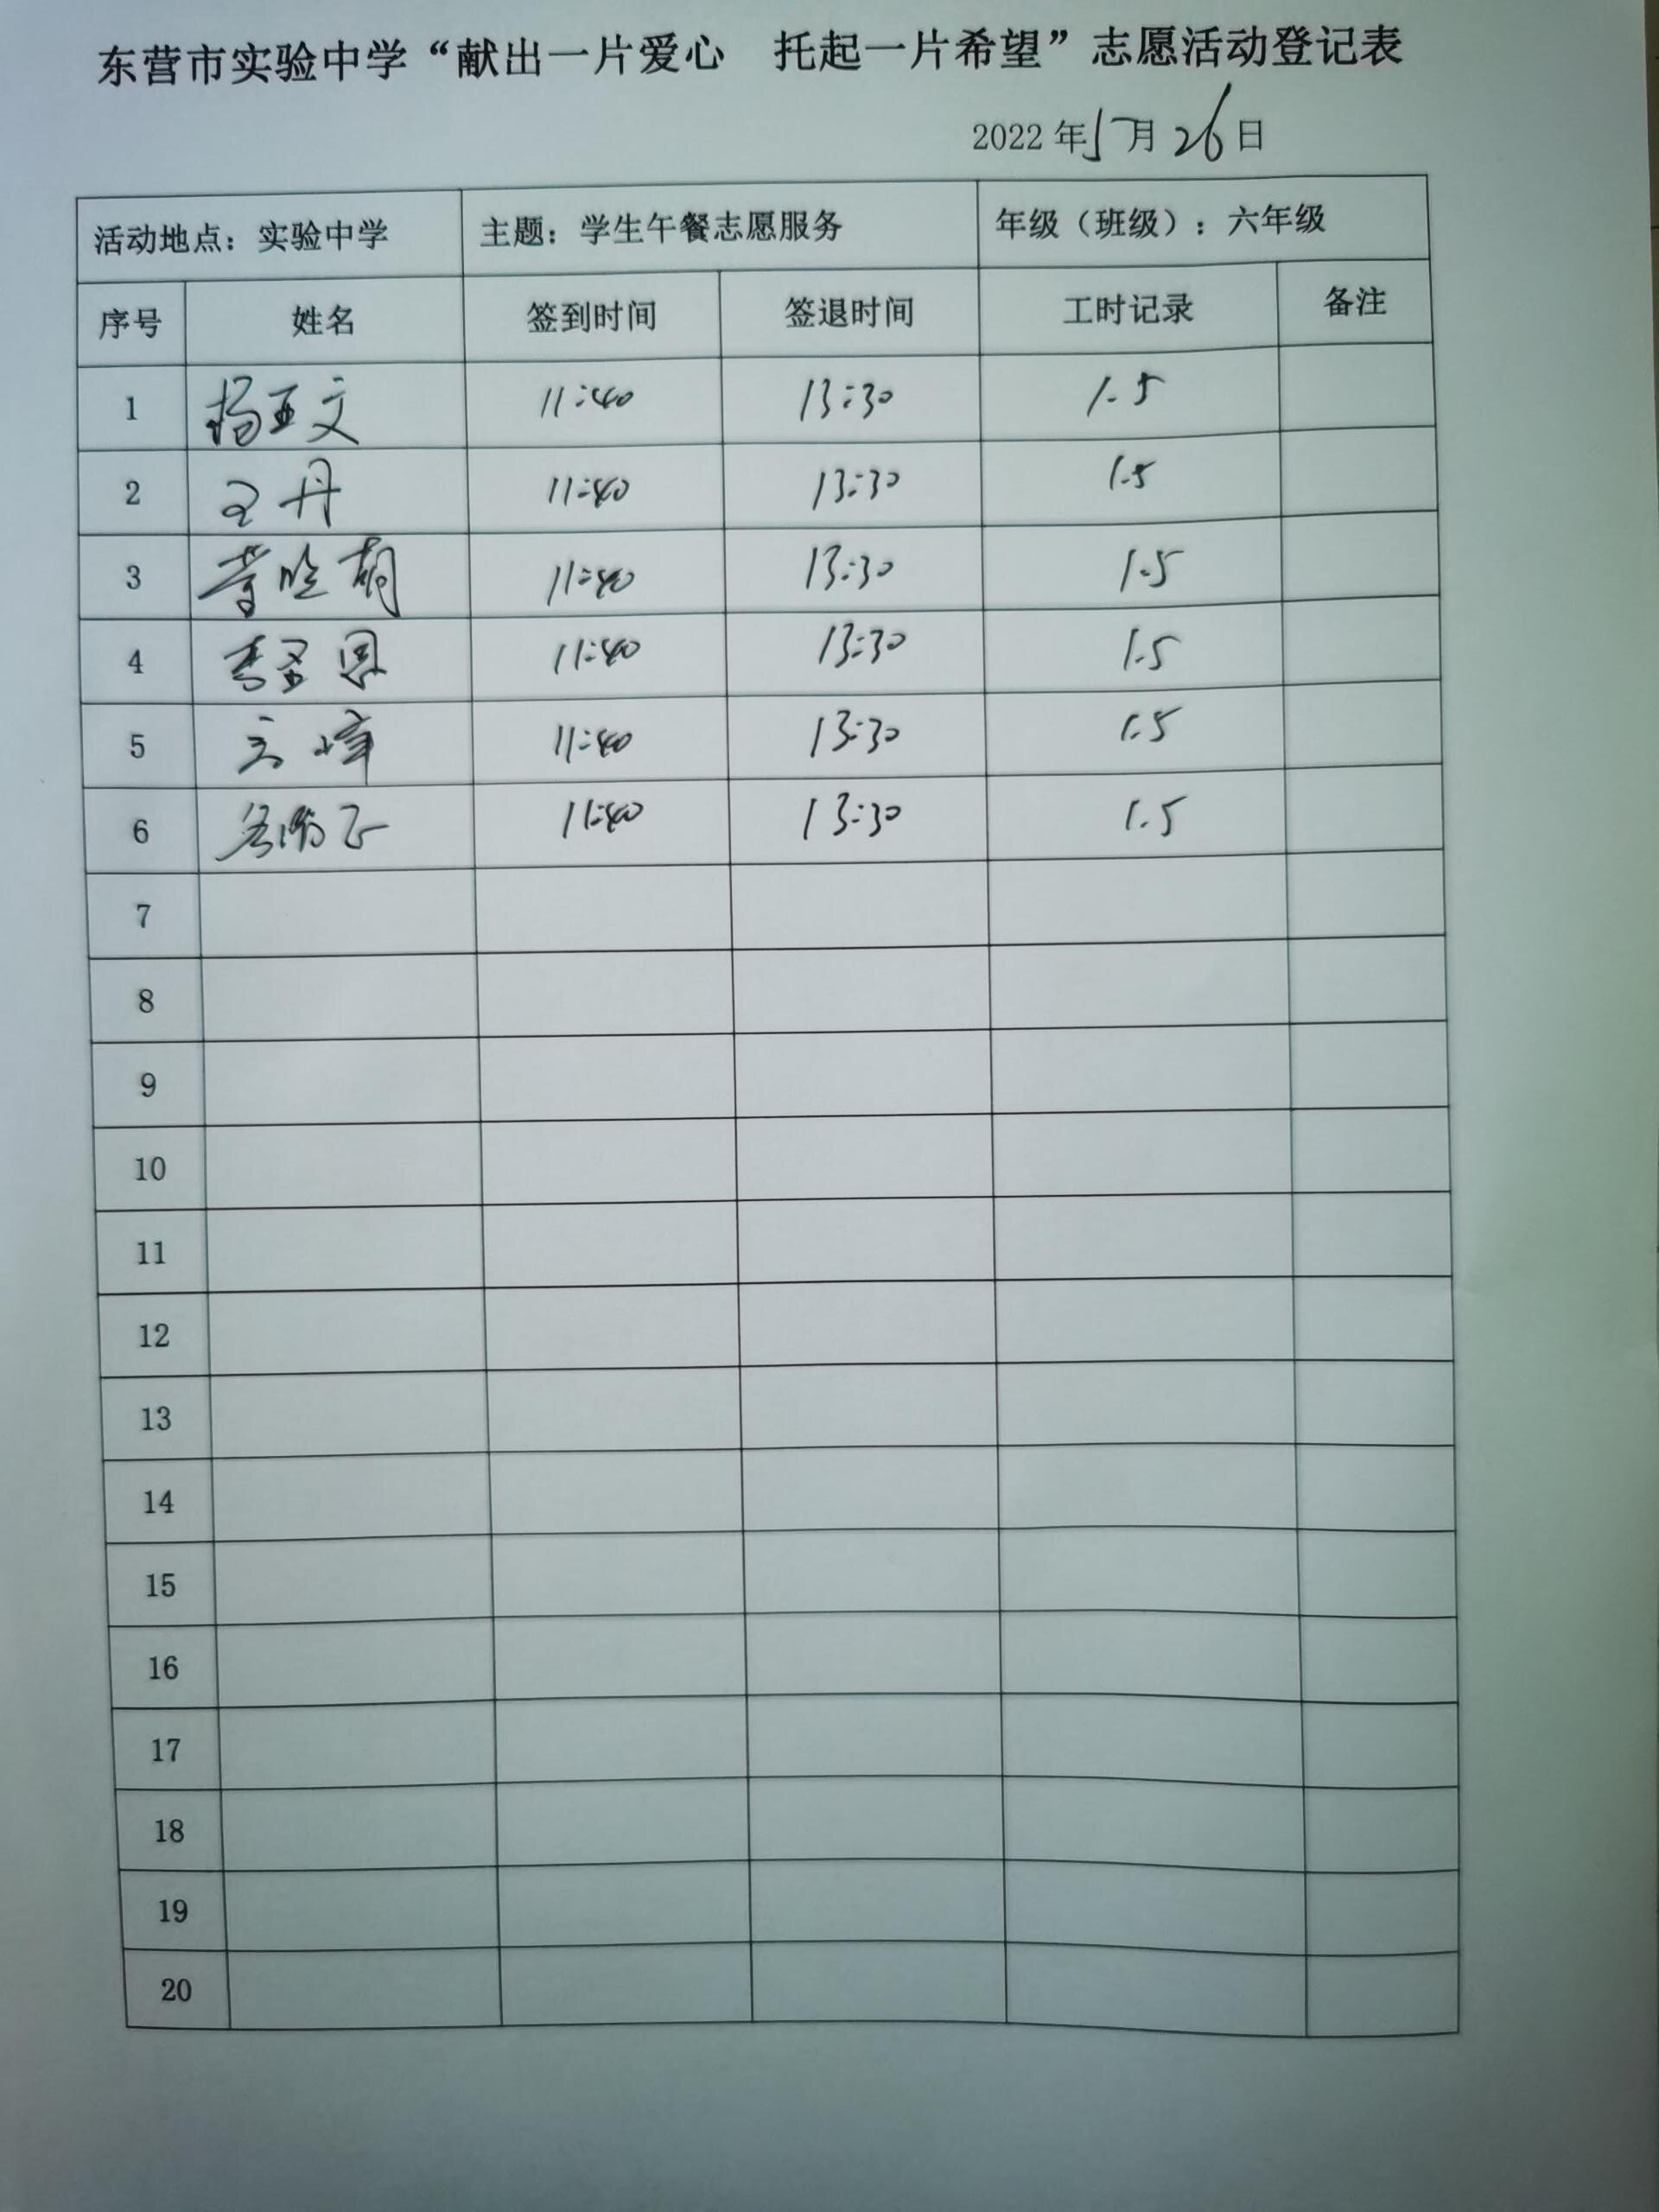 东营市实验中学“献出一片爱心 托起一片希望”志愿活动登记表
2022年5月26日
活动地点：实验中学 主题：学生午餐志愿服务 年级（班级）：六年级
序号 姓名 签到时间 签退时间 工时记录 备注
1 杨亚文 11:40 13:30 1.5
2 王丹 11:40 13:30 1.5
3 11:40 13:30 1.5
4 李圣恩 11:40 13:30 1.5
5 11:40 13:30 1.5
6 11:40 13:30 1.5
7
8
9
10
11
12
13
14
15
16
17
18
19
20